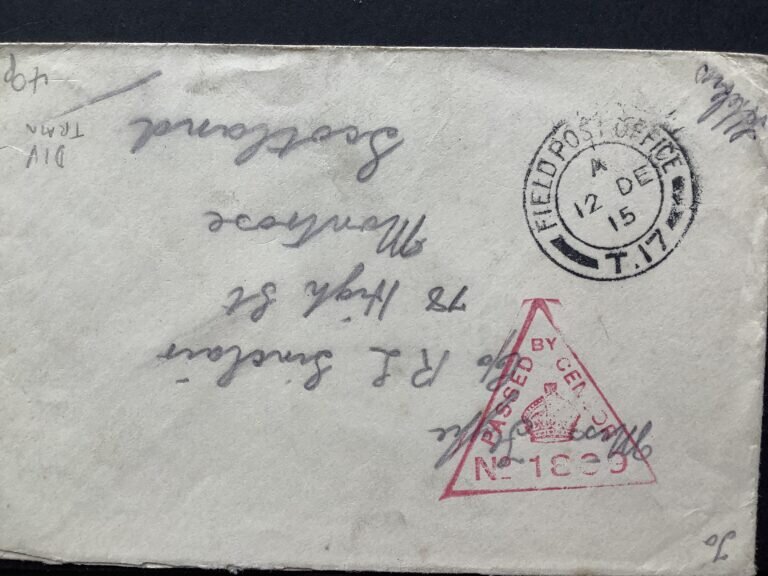 FIELD POST OFFICE
A
12 DE
15
T.17
PASSED BY CENSOR
No
To
Miss
C/o R L Sinclair
78 High St
Montrose
Scotland
DIV
TRAIN
40p